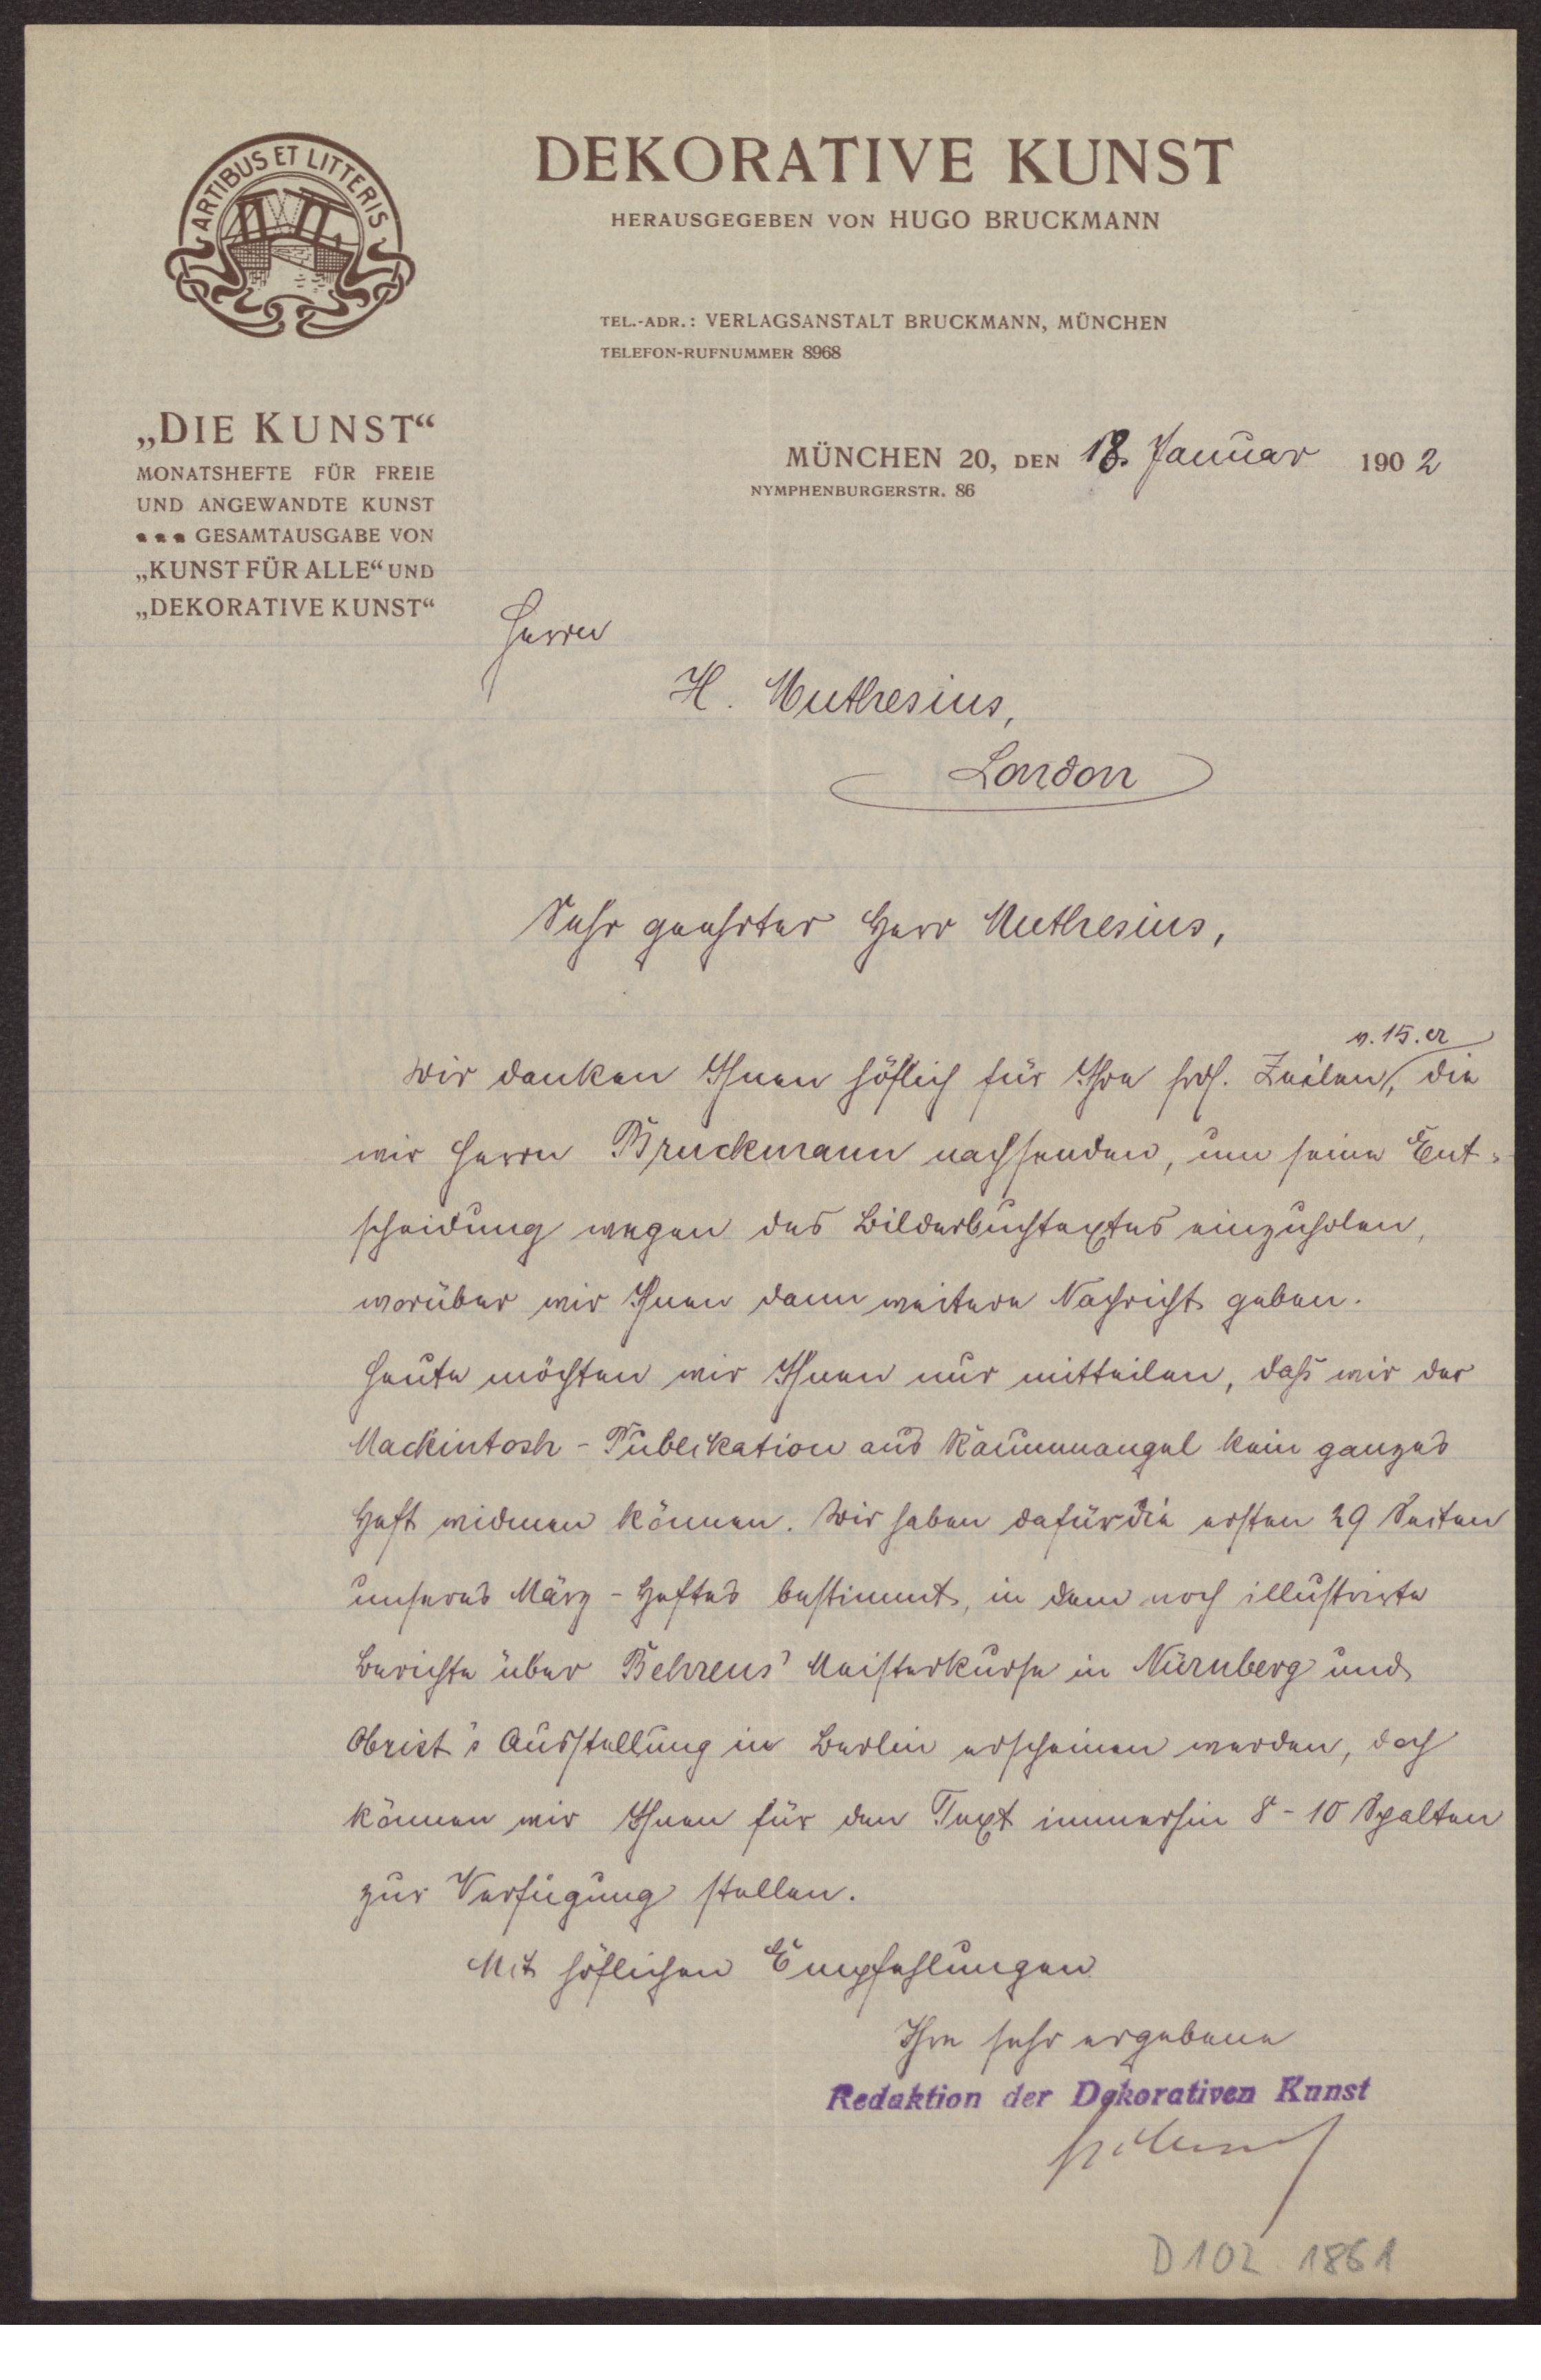 ARTIBUS ET LITTERIS
DEKORATIVE KUNST
HERAUSGEGEBEN VON HUGO BRUCKMANN
TEL.-ADR.: VERLAGSANSTALT BRUCKMANN, MÜNCHEN
TELEFON-RUFNUMMER 8968
„DIE KUNST“
MONATSHEFTE FÜR FREIE
UND ANGEWANDTE KUNST
GESAMTAUSGABE VON
„KUNST FÜR ALLE“ UND
„DEKORATIVE KUNST“
MÜNCHEN 20, DEN 18. Januar 1902
NYMPHENBURGERSTR. 86
Herrn
H. Muthesius,
London
Sehr geehrter Herr Muthesius,
v. 15. cr
wir danken Ihnen höflich für Ihre frdl. Zeilen, die
wir Herrn Bruckmann nachsenden, um seine Ent-
scheidung wegen des Bilderbuchtextes einzuholen,
worüber wir Ihnen dann weitere Nachricht geben.
Heute möchten wir Ihnen nur mitteilen, daß wir der
Mackintosh-Publikation aus Raummangel kein ganzes
Heft widmen können. Wir haben dafür die ersten 29 Seiten
unseres März-Heftes bestimmt, in dem noch illustrirte
Berichte über Behrens' Meisterkurse in Nürnberg und
Obrist's Ausstellung in Berlin erscheinen werden, doch
können wir Ihnen für den Text immerhin 8-10 Spalten
zur Verfügung stellen.
Mit höflichen Empfehlungen
Ihre sehr ergebene
Redaktion der Dekorativen Kunst
D 102 1861